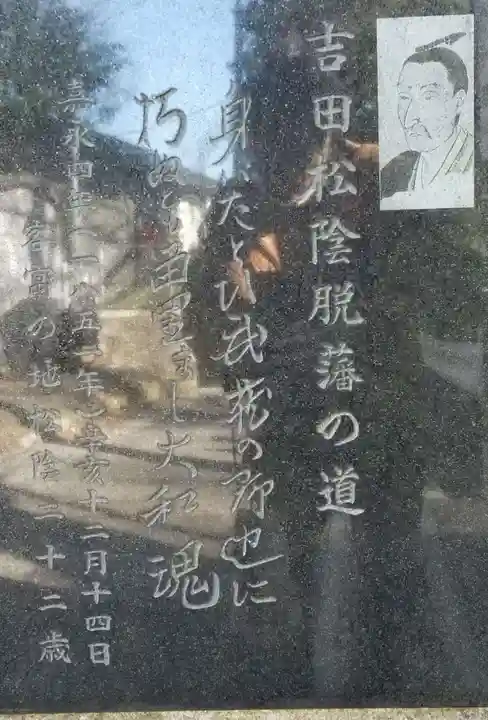 吉田松陰脱藩の道
身はたとひ武蔵の野辺に
朽ぬとも留置まし大和魂
嘉永四年(一八五一年)辛亥十二月十四日
客寓の地松陰二十二歳